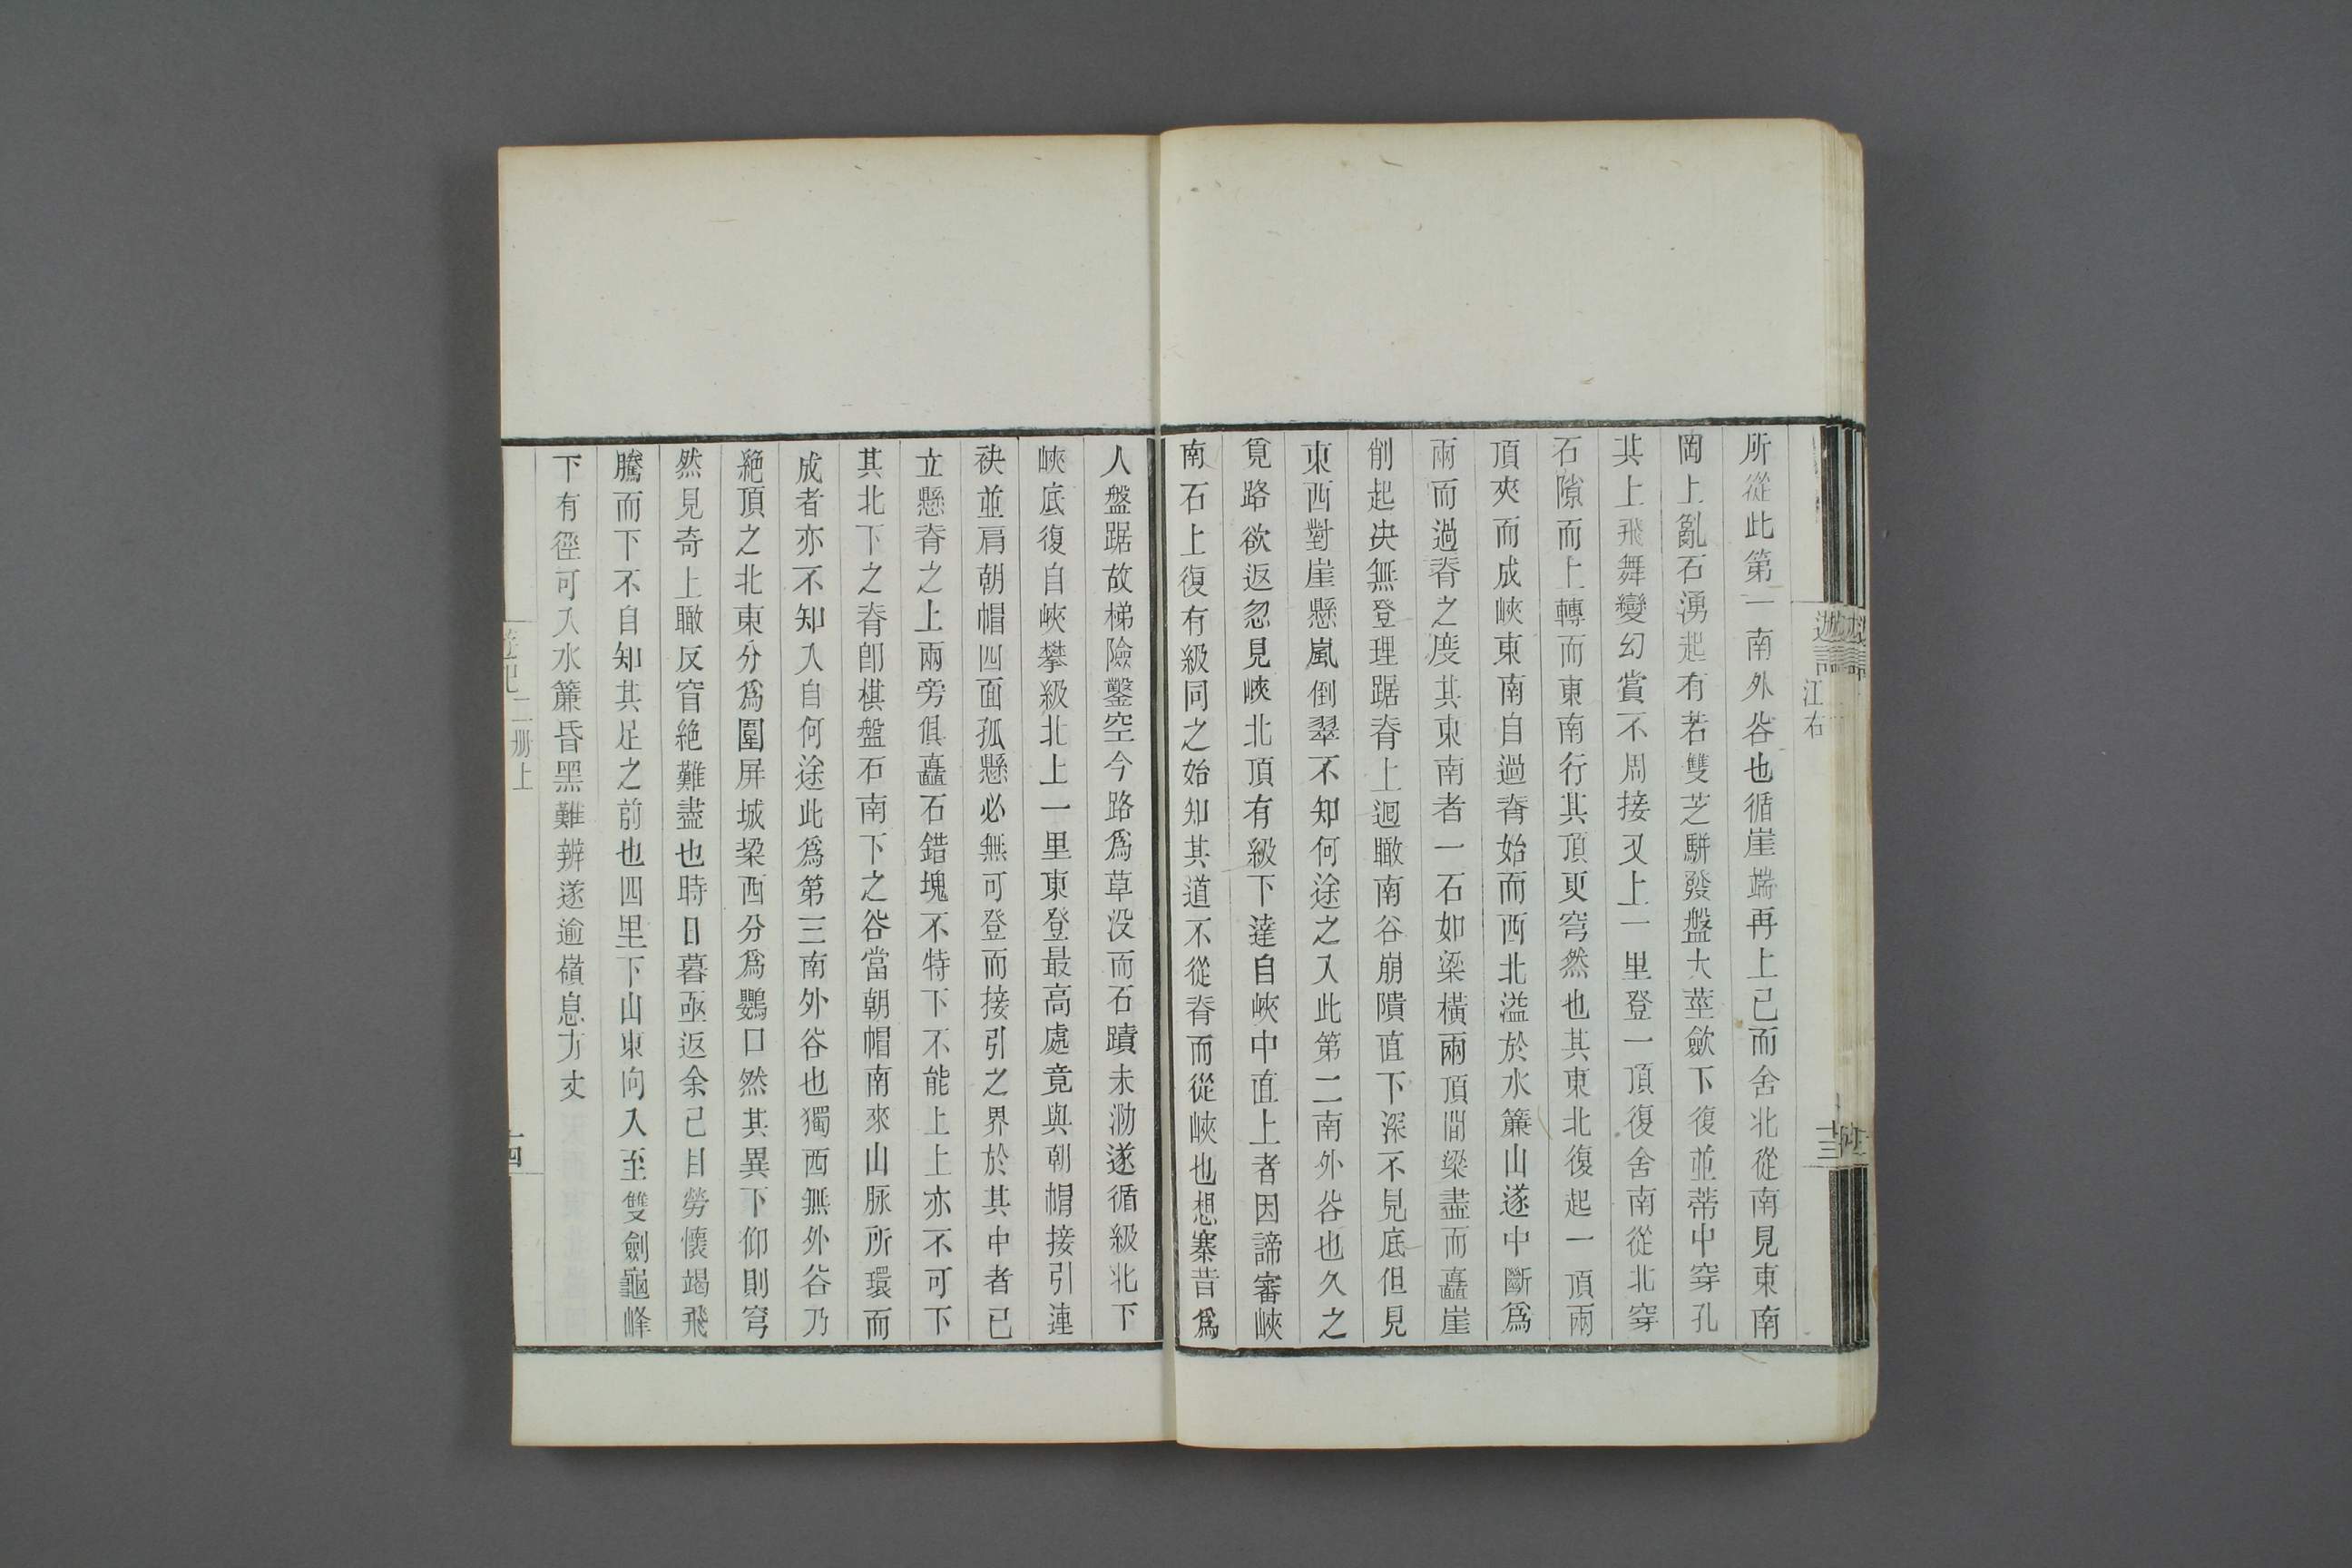 江右
十三
所從此第一南外谷也循崖端再上已而舍北從南見東南
岡上亂石湧起有若雙芝駢發盤大莖歛下復並蒂中穿孔
其上飛舞變幻賞不周接又上一里登一頂復舍南從北穿
石隙而上轉而東南行其頂更穹然也其東北復起一頂兩
頂夾而成峽東南自過脊始而西北溢於水簾山遂中斷爲
兩而過脊之度其東南者一石如梁橫兩頂間梁盡而矗崖
削起决無登理踞脊上迴瞰南谷崩隤直下深不見底但見
東西對崖懸嵐倒翠不知何途之入此第二南外谷也久之
覓路欲返忽見峽北頂有級下達自峽中直上者因諦審峽
南石上復有級同之始知其道不從脊而從峽也想寨昔爲
人盤踞故梯險鑿空今路爲草没而石蹟未泐遂循級北下
峽底復自峽攀級北上一里東登最高處竟與朝帽接引連
袂並肩朝帽四面孤懸必無可登而接引之界於其中者已
立懸脊之上兩旁俱矗石錯塊不特下不能上上亦不可下
其北下之脊卽棋盤石南下之谷當朝帽南來山脉所環而
成者亦不知入自何途此爲第三南外谷也獨西無外谷乃
絕頂之北東分爲圍屏城垜西分爲鸚口然其異下仰則穹
然見奇上瞰反窅絕難盡也時日暮亟返余已目勞懷竭飛
騰而下不自知其足之前也四里下山東向入至雙劍龜峰
下有徑可入水簾昏黑難辨遂逾嶺息方丈
遊記二册上
十四